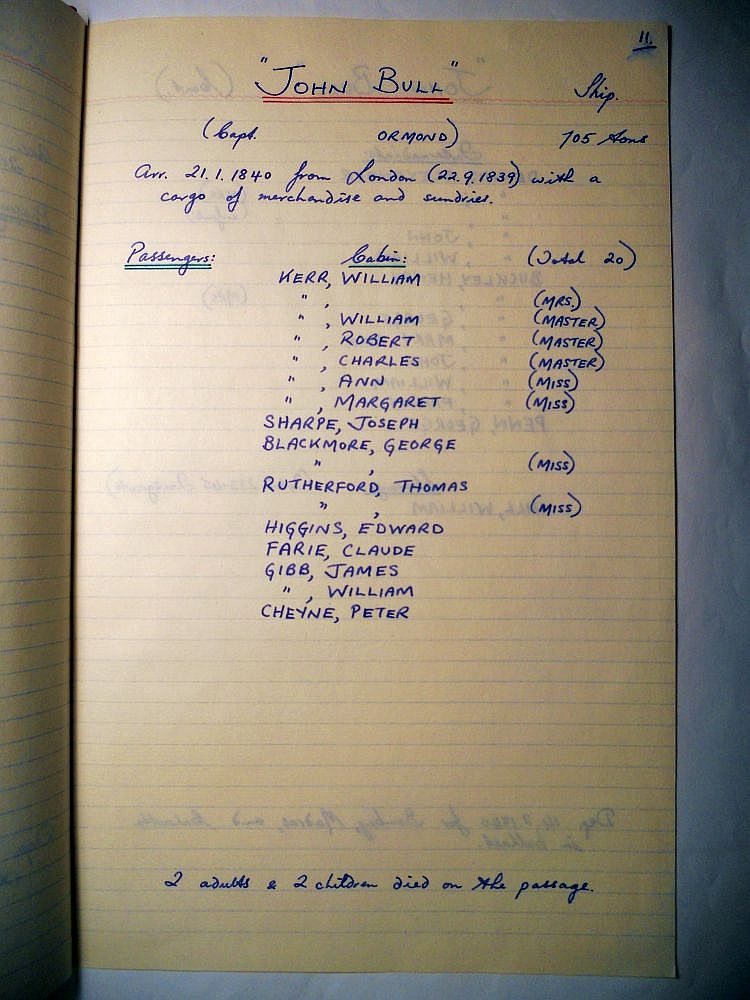 11.
"JOHN BULL" Ship.
(Capt. ORMOND) 705 tons
Arr. 21.1.1840 from London (22.9.1839) with a
cargo of merchandise and sundries.
Passengers: Cabin: (Total 20)
KERR, WILLIAM
" , (MRS.)
" , WILLIAM (MASTER)
" , ROBERT (MASTER)
" , CHARLES (MASTER)
" , ANN (MISS)
" , MARGARET (MISS)
SHARPE, JOSEPH
BLACKMORE, GEORGE
" , (MISS)
RUTHERFORD, THOMAS
" , (MISS)
HIGGINS, EDWARD
FARIE, CLAUDE
GIBB, JAMES
" , WILLIAM
CHEYNE, PETER
2 adults & 2 children died on the passage.